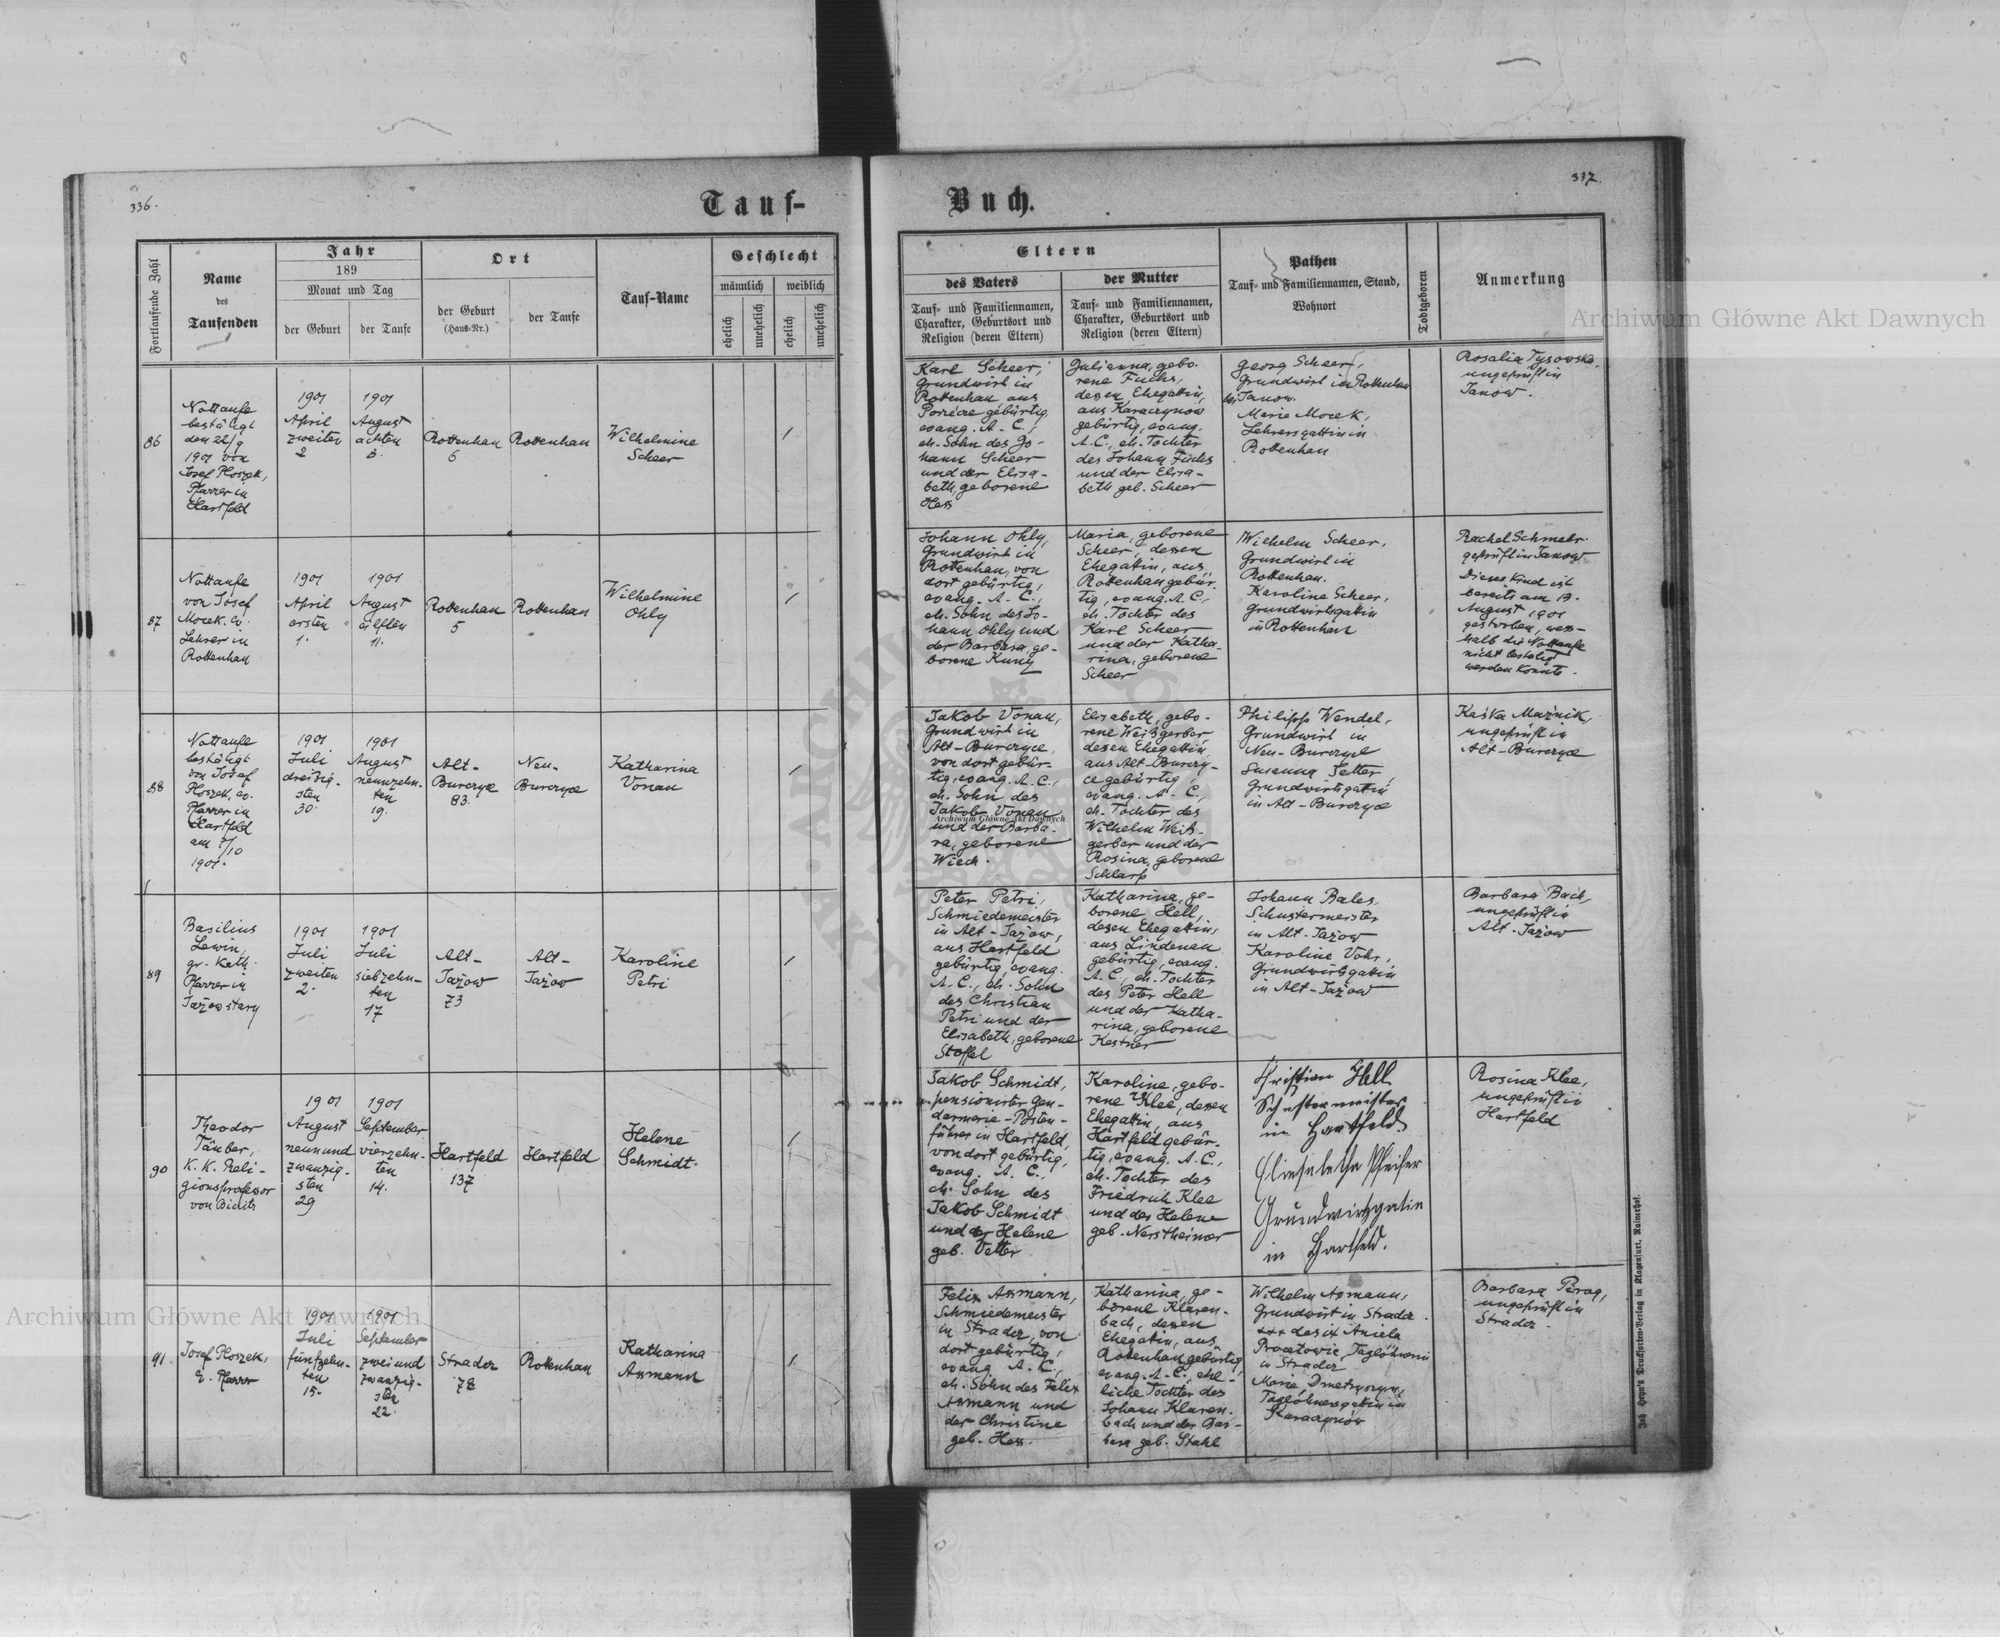 336.
Tauf-
Fortlaufende Zahl
Name
des
Taufenden
Jahr
189
Monat und Tag
der Geburt
der Taufe
Ort
der Geburt
(Haus-Nr.)
der Taufe
Tauf-Name
Geschlecht
männlich
weiblich
ehelich
unehelich
ehelich
unehelich
86
Nottaufe
bestätigt
den 22/9
1901 von
Josef Ploszek,
Pfarrer in
Hartfeld
1901
April
zweiten
2
1901
August
achten
8.
Rottenhan
6
Rottenhan
Wilhelmine
Scheer
87
Nottaufe
von Josef
Mocek, ev.
Lehrer in
Rottenhan
1901
April
ersten
1.
1901
August
eilften
11.
Rottenhan
5
Rottenhan
Wilhelmine
Ohly
88
Nottaufe
bestätigt
von Josef
Ploszek, ev.
Pfarrer in
Hartfeld
am 7/10
1901.
1901
Juli
dreißig-
sten
30.
1901
August
neunzehn-
ten
19.
Alt-
Burczyce
83.
Neu-
Burczyce
Katharina
Vonau
89
Basilius
Lewin,
gr. Kath.
Pfarrer in
Jażow stary
1901
Juli
zweiten
2.
1901
Juli
siebzehn-
ten
17
Alt-
Jażow
73
Alt-
Jażow
Karoline
Petri
90
Theodor
Täuber,
K. K. Reli-
gionsprofessor
von Bielitz
1901
August
neunund
zwanzig-
sten
29
1901
September
vierzehn-
ten
14.
Hartfeld
137
Hartfeld
Helene
Schmidt.
91.
Josef Ploszek,
ev. Pfarrer
1901
Juli
fünfzehn-
ten
15.
1901
September
zweiund
zwanzig-
sten
22.
Stradcz
78
Rottenhan
Katharina
Assmann
337.
Buch.
Eltern
des Vaters
Tauf- und Familiennamen,
Charakter, Geburtsort und
Religion (deren Eltern)
der Mutter
Tauf- und Familiennamen,
Charakter, Geburtsort und
Religion (deren Eltern)
Pathen
Tauf- und Familiennamen, Stand,
Wohnort
Todtgeboren
Anmerkung
Karl Scheer,
Grundwirt in
Rottenhan aus
Porzecze gebürtig,
evang. A. C.,
eh. Sohn des Jo-
hann Scheer
und der Elisa-
beth, geborene
Hess
Julianna, gebo-
rene Fuchs,
dessen Ehegattin,
aus Karaczynow
gebürtig, evang.
A. C., eh. Tochter
des Johann Fuchs
und der Elisa-
beth geb. Scheer
Georg Scheer,
Grundwirt in Rottenhan
bei Janow.
Marie Mocek,
Lehrersgattin in
Rottenhan
Rosalia Tysowska,
ungeprüft in
Janow.
Johann Ohly,
Grundwirt in
Rottenhan, von
dort gebürtig,
evang. A. C.,
eh. Sohn des Jo-
hann Ohly und
der Barbara ge-
borene Kunz
Maria, geborene
Scheer, dessen
Ehegattin, aus
Rottenhan gebür-
tig, evang. A. C.,
eh. Tochter des
Karl Scheer
und der Katha-
rina, geborene
Scheer
Wilhelm Scheer,
Grundwirt in
Rottenhan.
Karoline Scheer,
Grundwirtsgattin
in Rottenhan
Rachel Schmelr
geprüft in Janow
Dieses Kind ist
bereits am 13.
August 1901
gestorben, wes-
halb die Nottaufe
nicht bestätigt
werden konnte.
Jakob Vonau,
Grundwirt in
Alt-Burczyce,
von dort gebür-
tig, evang. A. C.,
eh. Sohn des
Jakob Vonau
und der Barba-
ra, geborene
Wiech.
Elisabeth, gebo-
rene Weißgerber
dessen Ehegattin,
aus Alt-Burczy-
ce gebürtig,
evang. A. C.,
eh. Tochter des
Wilhelm Weiß-
gerber und der
Rosina, geborene
Schlarp
Philipp Wendel,
Grundwirt in
Neu-Burczyce
Susanna Jetter,
Grundwirtsgattin
in Alt-Burczyce
Kaśka Maźnik,
ungeprüft in
Alt-Burczyce
Peter Petri,
Schmiedemeister
in Alt-Jażow,
aus Hartfeld
gebürtig, evang.
A. C., eh. Sohn
des Christian
Petri und der
Elisabeth, geborene
Stoffel
Katharina, ge-
borene Hell,
dessen Ehegattin,
aus Lindenau
gebürtig, evang.
A. C., eh. Tochter
des Peter Hell
und der Katha-
rina, geborene
Kestner
Johann Bales,
Schustermeister
in Alt-Jażow
Karoline Vohr,
Grundwirtsgattin
in Alt-Jażow
Barbara Bach,
ungeprüft in
Alt-Jażow
Jakob Schmidt,
pensionirter Gen-
darmerie-Posten-
führer in Hartfeld,
von dort gebürtig,
evang. A. C.,
eh. Sohn des
Jakob Schmidt
und der Helene
geb. Vetter
Karoline, gebo-
rene Klee, dessen
Ehegattin, aus
Hartfeld gebür-
tig, evang. A. C.,
eh. Tochter des
Friedrich Klee
und der Helene
geb. Nerstheimer
Christian Hell
Schustermeister
in Hartfeld.
Elisabetha Pfeifer
Grundwirtsgatin
in Hartfeld.
Rosina Klee,
ungeprüft in
Hartfeld
Felix Assmann,
Schmiedemeister
in Stradcz, von
dort gebürtig,
evang. A. C.,
eh. Sohn des Felix
Assmann und
der Christine
geb. Hess.
Katharina, ge-
borene Klaren-
bach, dessen
Ehegattin, aus
Rottenhan gebürtig,
evang. A. C., ehe-
liche Tochter des
Johann Klaren-
bach und der Bar-
bara geb. Stahl
Wilhelm Assmann,
Grundwirt in Stradcz.
Aniela
Taglöhnerin
in Stradcz
Marie Dmetryszyn,
Taglöhnersgattin in
Karaczynów
Barbara Perog,
ungeprüft in
Stradcz.
Joh. Heyn's Drucksorten-Verlag in Klagenfurt, Rainerhof.
Archiwum Główne Akt Dawnych
Archiwum Główne Akt Dawnych
Archiwum Główne Akt Dawnych